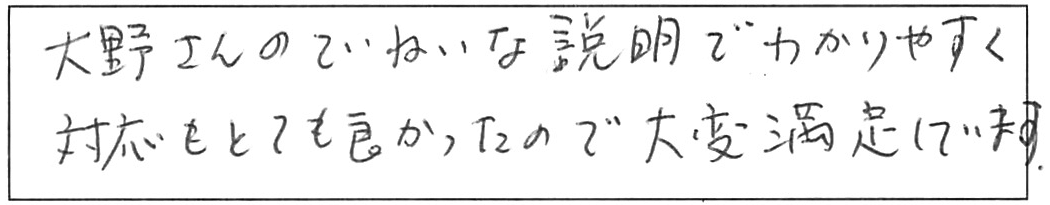 大野さんのていねいな説明でわかりやすく
対応もとても良かったので大変満足しています.